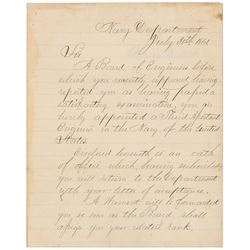 Navy Department
July 30th 1861
Sir
A Board of Engineers before
which you recently appeared having
reported you as having passed a
satisfactory examination, you are
hereby appointed a Third Assistant
Engineer in the Navy of the United
States.
Enclosed herewith is an oath
of office which, having subscribed
you will return to the Department
with your letter of acceptance.
A Warrant will be forwarded
you so soon as the Board shall
assign you your relative rank.